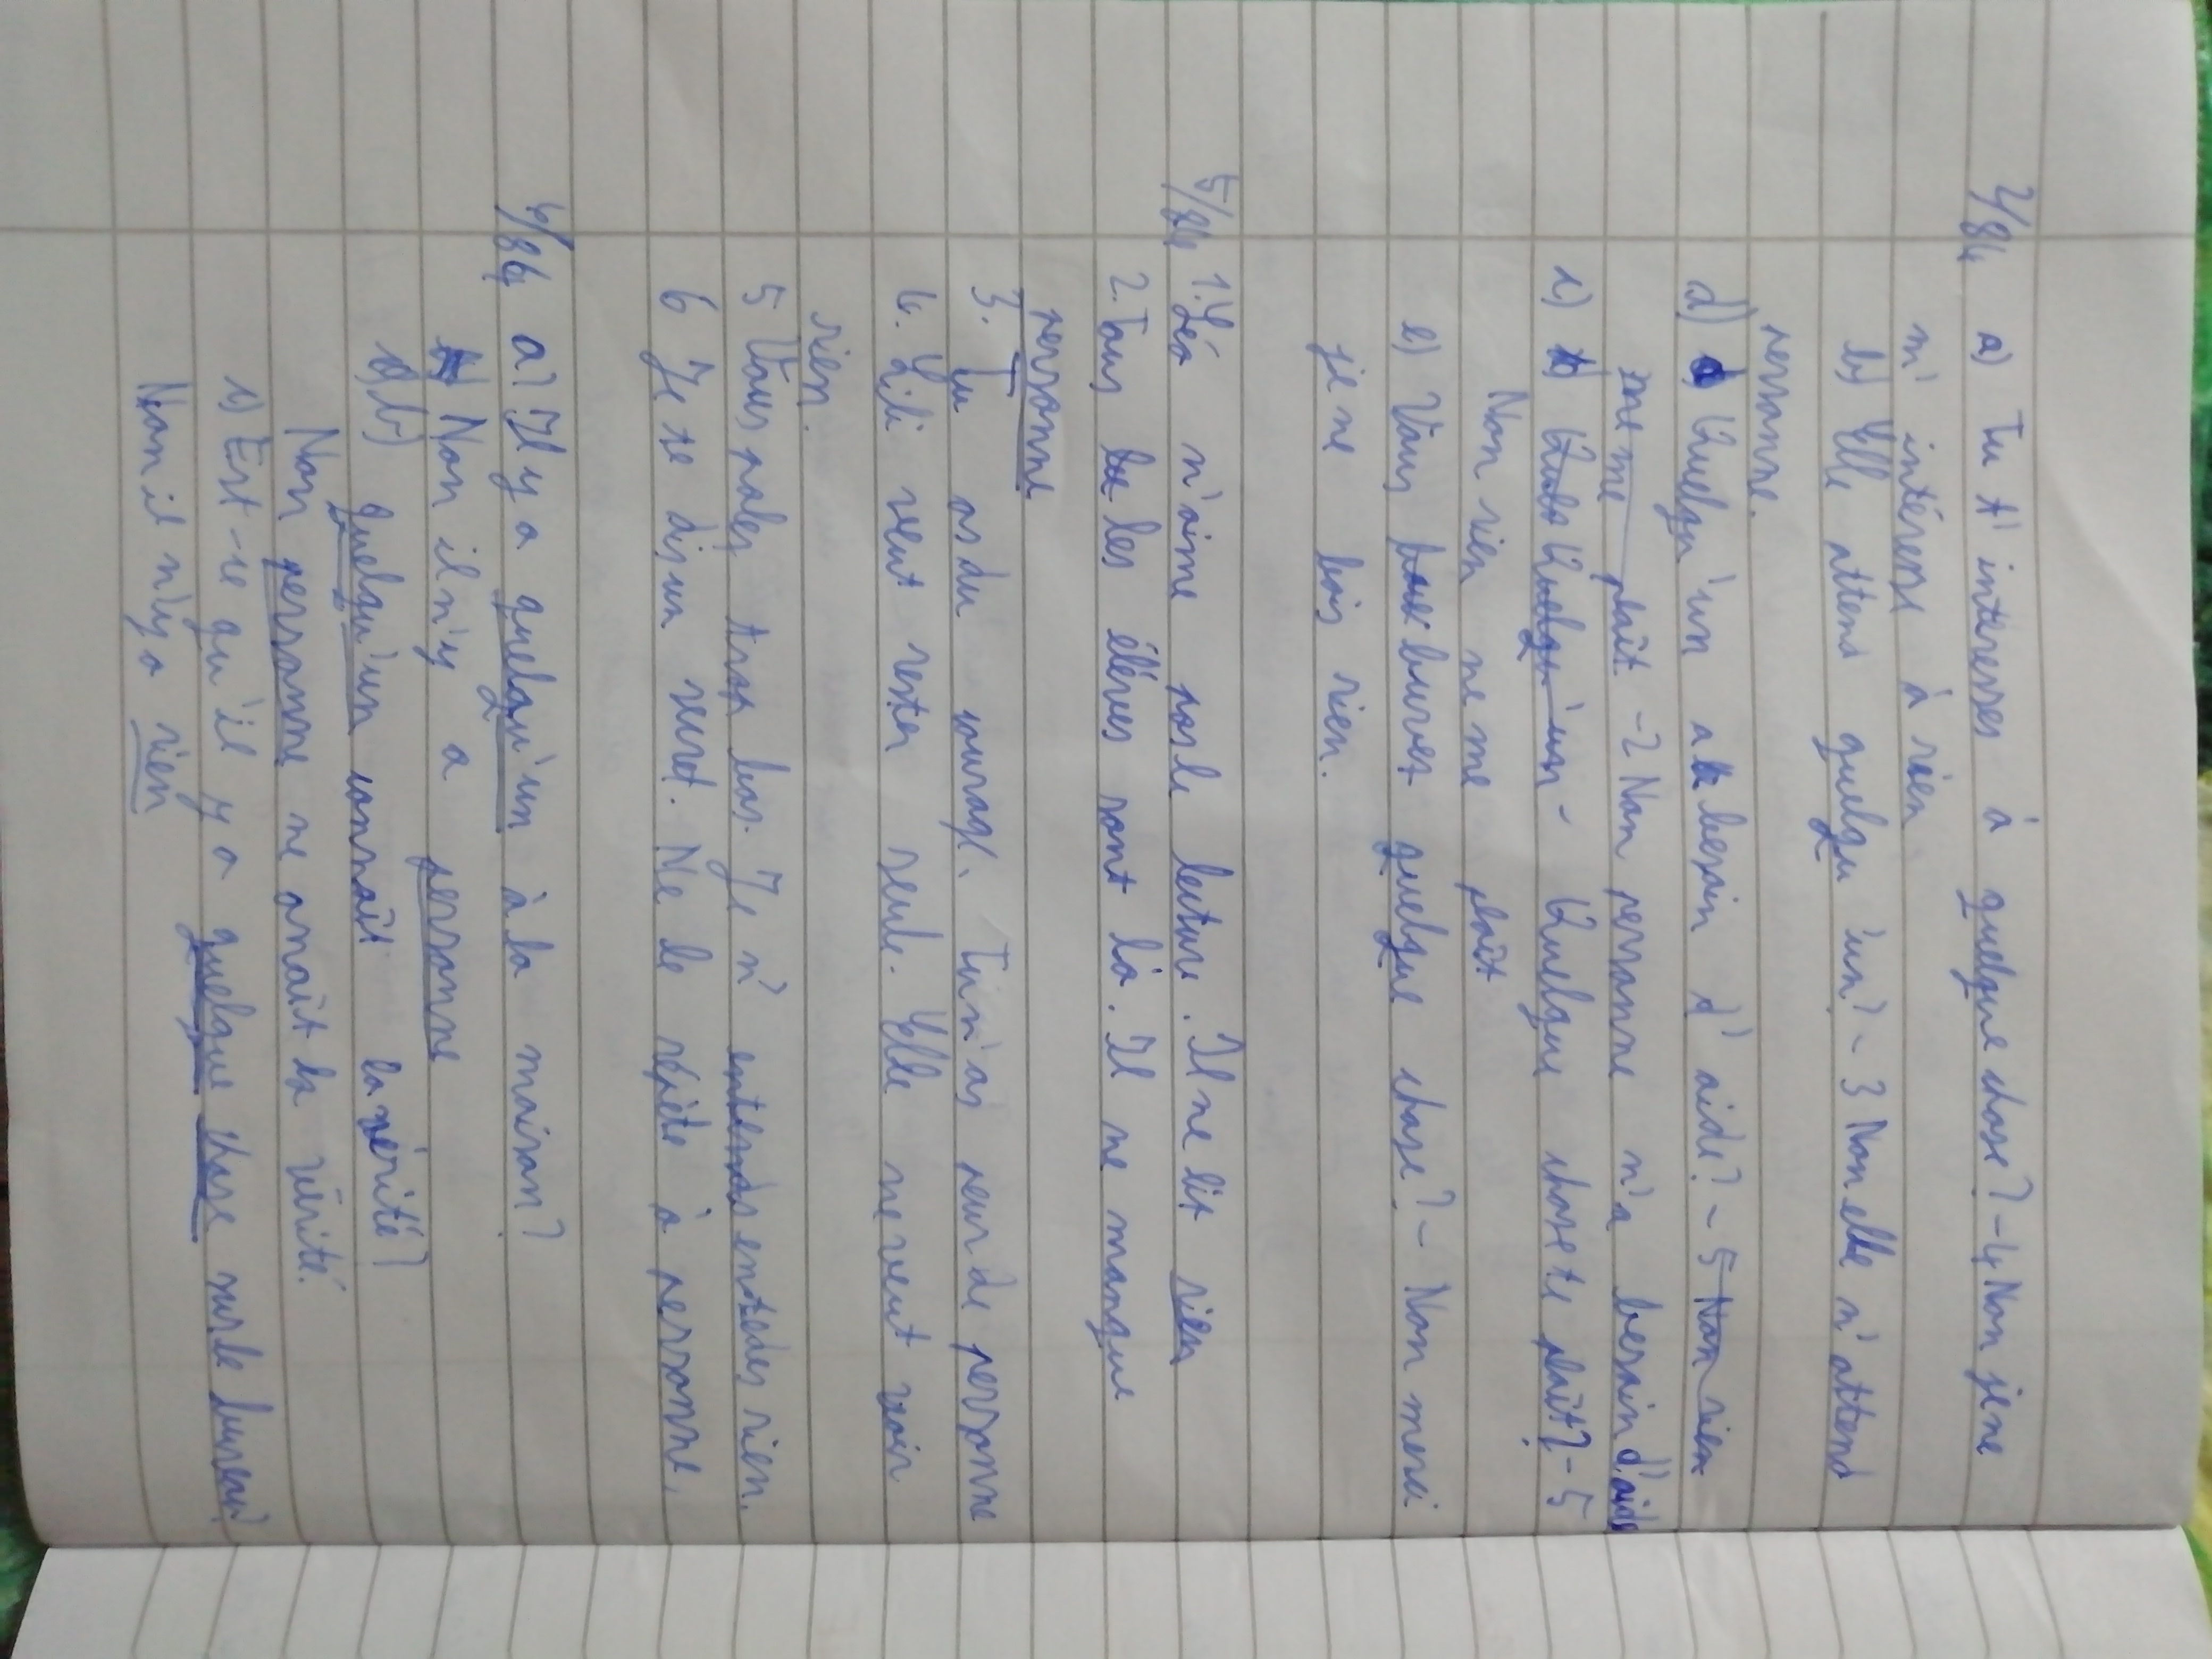 2/84 a) Tu t' interesses à quelque chose? - 4 Non je ne
m' intéresse à rien
b) Elle attend quelqu 'un? - 3 Non elle n' attend
personne.
d) Quelqu 'un a besoin d' aide? - 5 Non rien
ne me plaît - 2 Non personne n'a besoin d'aide
c) Quelqu'un - Quelque chose te plaît? - 5
Non rien ne me plaît
e) Vous buvez quelque chose? - Non merci
je ne bois rien.
5/84 1. Léo n'aime pas la lecture. Il ne lit rien
2. Tous les élèves sont là. Il ne manque
personne
3. Tu as du courage. Tu n'as peur de personne
4. Lili veut rester seule. Elle ne veut voir
rien.
5 Vous parlez trop bas. Je n' entends entedes rien.
6 Je te dis un secret. Ne le répète à personne.
6/84 a) Il y a quelqu'un à la maison?
Non il n'y a personne
b) quelqu'un connaît la vérité?
Non personne ne onnaît la vérité.
c) Est-ce qu'il y a quelque chose sur le bureau?
Non il n'y a rien